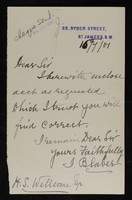 Cheque sent
28, RYDER STREET,
ST JAMES'S. S.W.
16/7/01
Dear Sir
I herewith enclose
acct as requested
which I trust you will
find Correct.
I remain Dear Sir
Yours Faithfully
H. S. Wellcome Esq